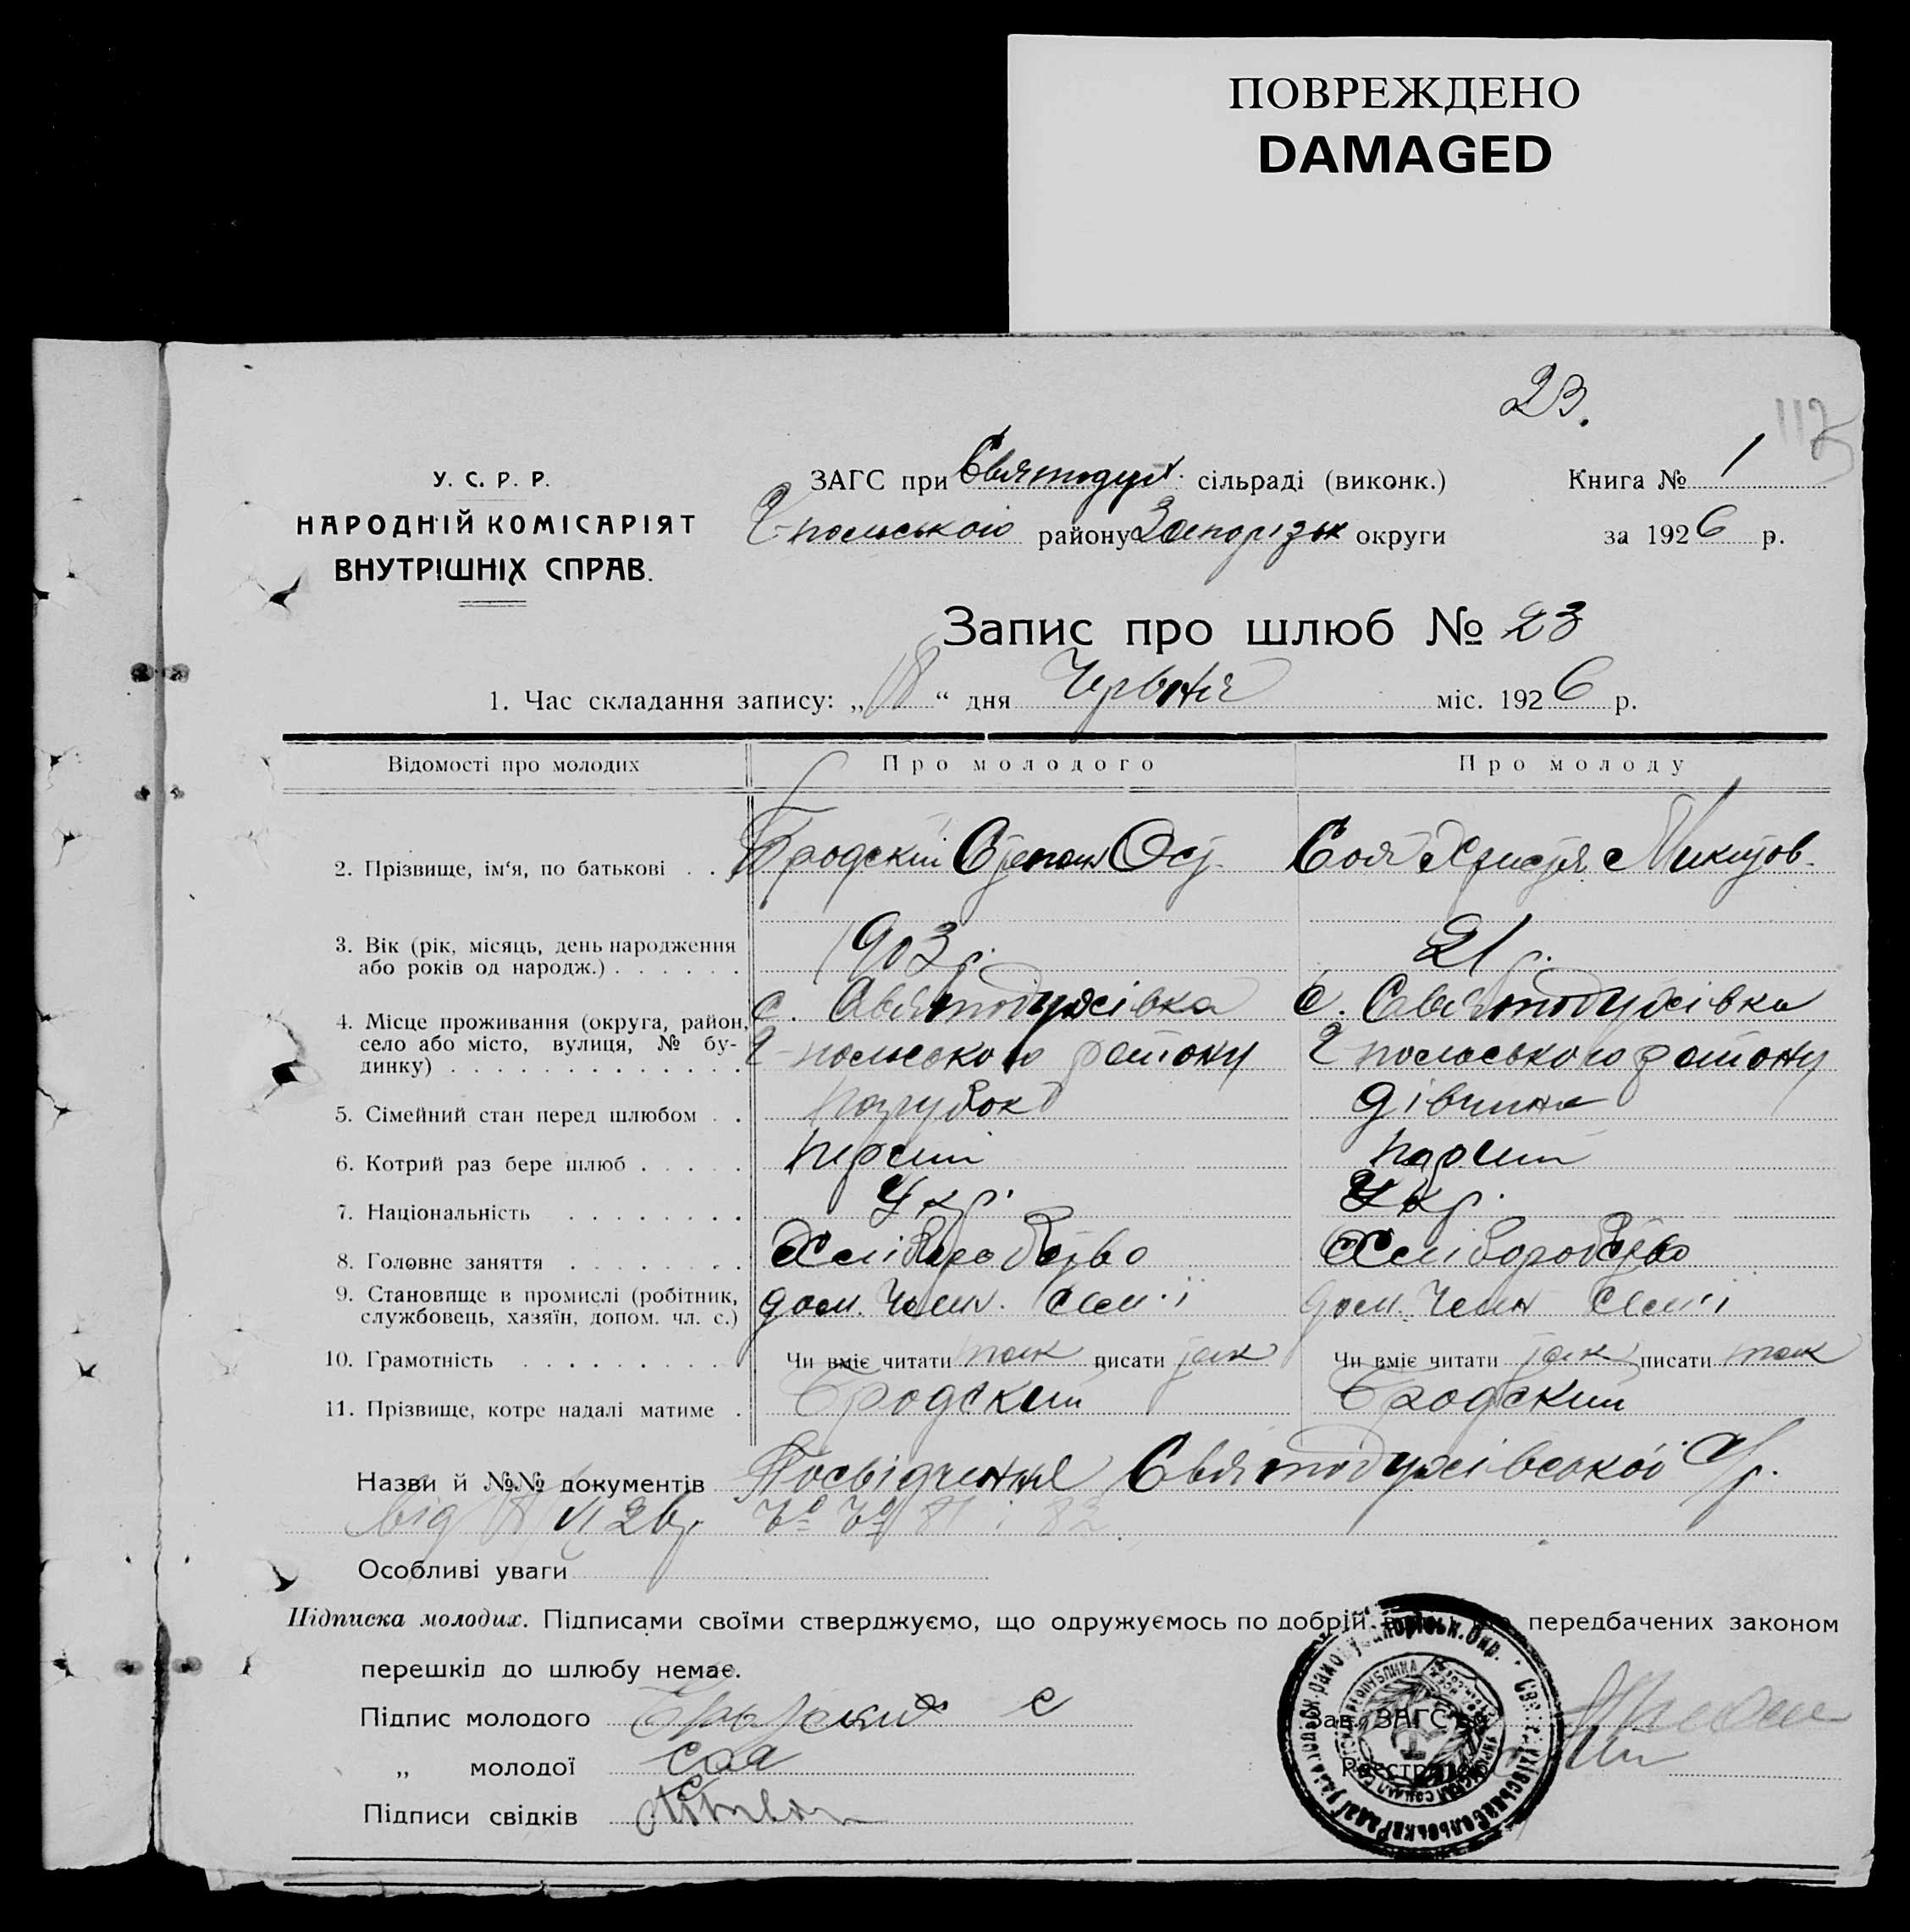 ПОВРЕЖДЕНО
DAMAGED
23.
112
У. С. Р. Р.
НАРОДНІЙ КОМІСАРІЯТ
ВНУТРІШНІХ СПРАВ.
ЗАГС при Святодух. сільраді (виконк.)
Г-польського району Запорізьк округи
Книга № 1
за 1926 р.
Запис про шлюб № 23
1. Час складання запису: „18“ дня Червня міс. 1926 р.
Відомості про молодих
Про молодого
Про молоду
2. Прізвище, ім‘я, по батькові . .
Бродский Степан Ост.
Соя Христя Микитов.
3. Вік (рік, місяць, день народження
або років од народж.) . . . . . .
1903 р.
21 р.
4. Місце проживання (округа, район,
село або місто, вулиця, № бу-
динку) . . . . . . . . . . . . .
с. Святодухівка
Г-польського району
с. Святодухівка
Г-польського району
5. Сімейний стан перед шлюбом . .
парубок
дівчина
6. Котрий раз бере шлюб . . . . .
перший
перший
7. Національність . . . . . . . .
Укр.
Укр.
8. Головне заняття . . . . . . . .
Хліборобство
Хліборобство
9. Становище в промислі (робітник,
службовець, хазяїн, допом. чл. с.)
дом. член. сем'ї
дом. член сем'ї
10. Грамотність . . . . . . . . . .
Чи вміє читати так писати так
Чи вміє читати так писати так
11. Прізвище, котре надалі матиме .
Бродский
Бродский
Назви й №№ документів Посвідчення Святодухівської С/р.
від 18/VI 26 р. №№ 81 і 82
Особливі уваги
Підписка молодих. Підписами своїми стверджуємо, що одружуємось по добрій передбачених законом
перешкід до шлюбу немає.
Підпис молодого Бродский С
„ молодої Соя
Підписи свідків
Зав. ЗАГС'ом
Реєстратор